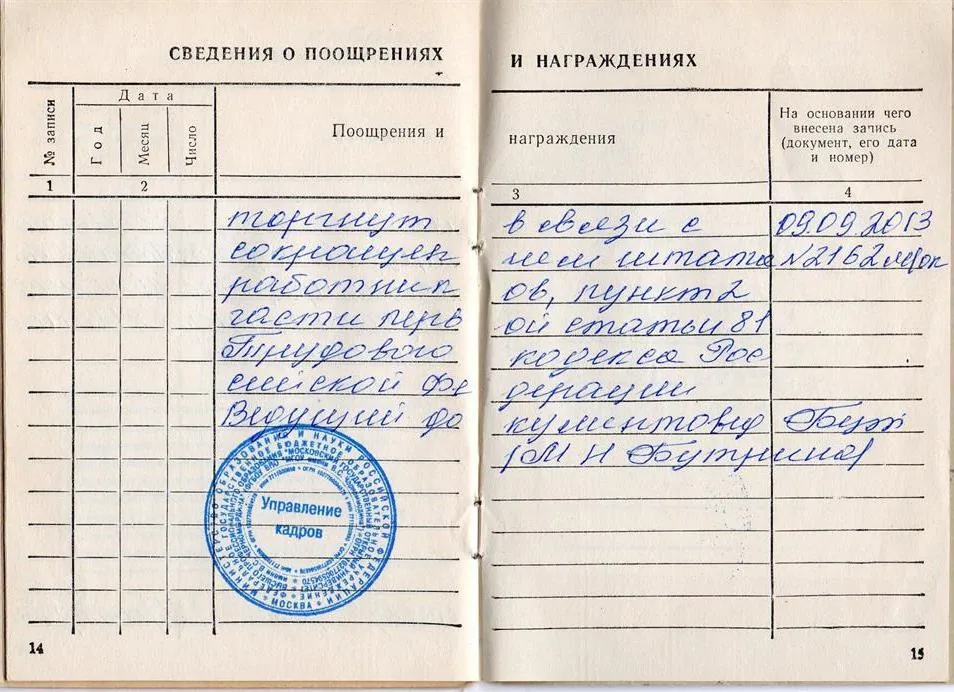 СВЕДЕНИЯ О ПООЩРЕНИЯХ И НАГРАЖДЕНИЯХ
№ записи
Дата
Год
Месяц
Число
Поощрения и награждения
На основании чего
внесена запись
(документ, его дата
и номер)
1 2 3 4
торгнут в связи с 09.09.2013
сокращен ием штата №2162
работник ов, пункт 2
части перв ой статьи 81
Трудового кодекса Рос
сийской Фе дерации
Ведущий до кументовед
(М Н Бутрина)
Управление
кадров
МИНИСТЕРСТВО ОБРАЗОВАНИЯ И НАУКИ РОССИЙСКОЙ ФЕДЕРАЦИИ
МОСКВА
14
15